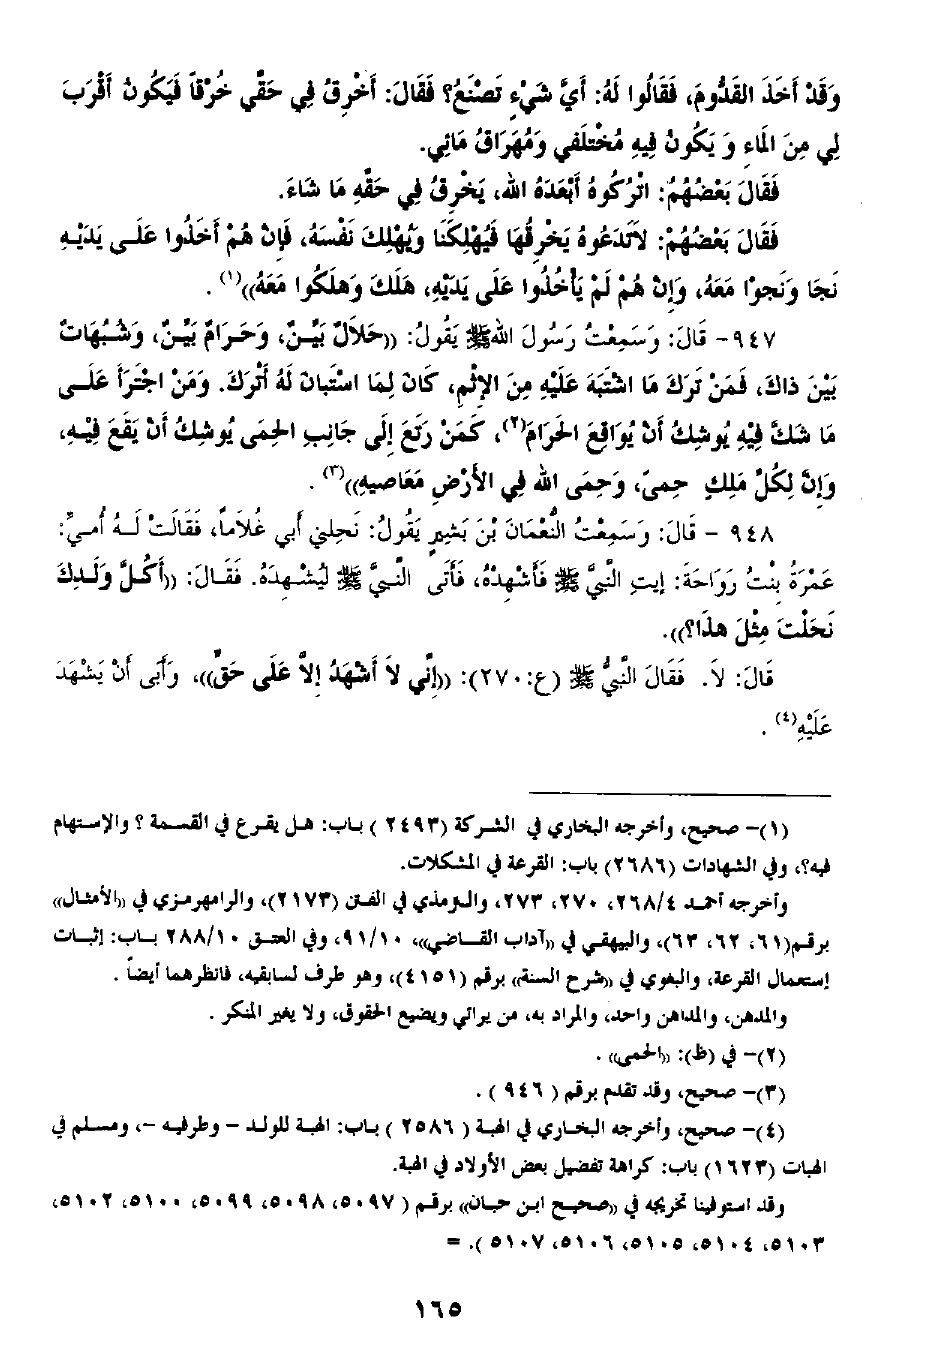 وَقَدْ أَخَذَ القَدُّومَ، فَقَالُوا لَهُ: أَيَّ شَيْءٍ تَصْنَعُ؟ فَقَالَ: أَخْرِقُ فِي حَقِّي خُرْقاً فَيَكُونُ أَقْرَبَ
لِي مِنَ الْمَاءِ وَ يَكُونُ فِيهِ مُخْتَلَفِي وَمُهَرَاقُ مَائِي.
فَقَالَ بَعْضُهُمْ: اتْرُكُوهُ أَبْعَدَهُ الله، يَخْرِقُ فِي حَقِّهِ مَا شَاءَ.
فَقَالَ بَعْضُهُمْ: لاَتَدَعُوهُ يَخْرِقُهَا فَيُهْلِكَنَا وَيُهْلِكَ نَفْسَهُ، فَإِنْ هُمْ أَخَذُوا عَلَـى يَدَيْـهِ
نَجَا وَنَجوْا مَعَهُ، وَإِنْ هُمْ لَمْ يَأْخُذُوا عَلَى يَدَيْهِ، هَلَكَ وَهَلَكُوا مَعَهُ))(١) .
٩٤٧- قَالَ: وَسَمِعْتُ رَسُولَ اللهﷺ يَقُولُ: ((حَلاَلٌ بَيِّنٌ، وَحَرَامٌ بَيِّنٌ، وَشُبُهَاتٌ
بَيْنَ ذَاكَ، فَمَنْ تَرَكَ مَا اشْتَبَهَ عَلَيْهِ مِنَ الإِثْمِ، كَانَ لِمَا اسْتَبَانَ لَهُ أَتْرَكَ. وَمَنْ اجْتَرَأَ عَلَـى
مَا شَكَّ فِيْهِ يُوشِكُ أَنْ يُوَاقِعَ الحَرَامَ(٢)، كَمَنْ رَتَعَ إِلَى جَانِبِ الحِمَى يُوشِكُ أَنْ يَقَعَ فِيْـهِ،
وَإِنَّ لِكُلِّ مَلِكٍ حِمىً، وَحِمَى الله فِي الأَرْضِ مَعَاصيهِ))(٣) .
٩٤٨ - قَالَ: وَسَمِعْتُ النُّعْمَانَ بْنَ بَشِيرٍ يَقُولُ: نَحِلَنِي أَبِي غُلاَماً، فَقَالَتْ لَـهُ أُمـيِّ:
عَمْرَةُ بِنْتُ رَوَاحَةَ: إيتِ النَّبِيَّ ﷺ فَأَشْهِدْهُ، فَأَتَى النَّبِيَّ ﷺ لِيُشْـهِدَهُ. فَقَـالَ: ((أَكُـلَّ وَلَـدِكَ
نَحَلْتَ مِثْلَ هذَا؟)).
قَالَ: لاَ. فَقَالَ النَّبِيُّ ﷺ (ع:٢٧٠): ((إِنِّي لاَ أَشْهَدُ إِلاَّ عَلَى حَقٍّ))، وَأَبَى أَنْ يَشْهَدَ
عَلَيْهِ(٤) .
(١)- صحيح، وأخرجه البخاري في الشركة (٢٤٩٣ ) بـاب: هـل يقـرع في القسمة ؟ والإستهام
فيه؟، وفي الشهادات (٢٦٨٦) باب: القرعة في المشكلات.
وأخرجه أحمـد ٢٦٨/٤، ٢٧٠، ٢٧٣، والـترمذي في الفتن (٢١٧٣)، والرامهرمـزي في ((الأمثال))
برقـم(٦١، ٦٢، ٦٣)، والبيهقـي في ((آداب القـاضي))، ٩١/١٠، وفي العتـق ٢٨٨/١٠ بـاب: إثبـات
إستعمال القرعة، والبغوي في ((شرح السنة)) برقم (٤١٥١)، وهو طرف لسابقيه، فانظرهما أيضاً .
والمدهن، والمداهن واحد، والمراد به، من يرائي ويضيع الحقوق، ولا يغير المنكر .
(٢)- في (ظ): ((الحمى)) .
(٣)- صحيح، وقد تقدم برقم ( ٩٤٦ ) .
(٤)- صحيح، وأخرجه البخـاري في الهبة ( ٢٥٨٦ ) بـاب: الهبة للولـد - وطرفيـه -، ومسلم في
الهبات (١٦٢٣) باب: كراهة تفضيل بعض الأولاد في الهبة.
وقد استوفينا تخريجه في ((صحيح ابـن حبـان)) برقـم ( ٥٠٩٧، ٥٠٩٨، ٥٠٩٩، ٥١٠٠، ٥١٠٢،
٥١٠٣، ٥١٠٤، ٥١٠٥، ٥١٠٦، ٥١٠٧ ). =
١٦٥